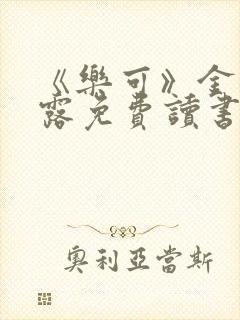 《樂可》金
露免費讀書
奧利亞當斯